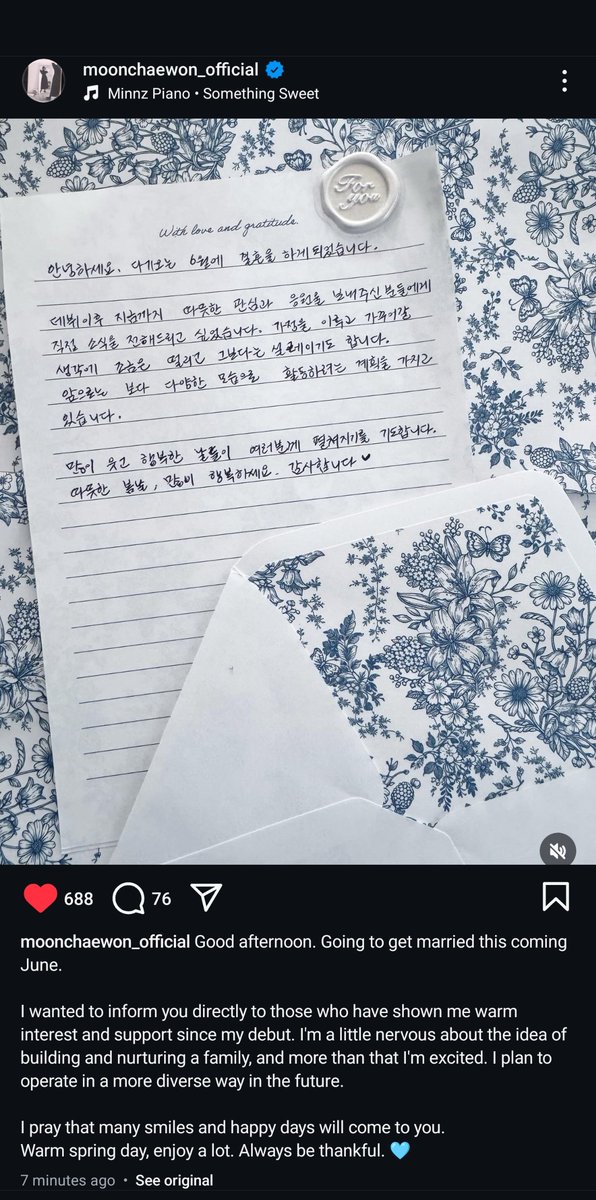 moonchaewon_official
Minnz Piano • Something Sweet
For
you
With love and gratitude.
안녕하세요. 다가오는 6월에 결혼을 하게 되었습니다.
데뷔이후 지금까지 따뜻한 관심과 응원을 보내주신 분들에게
직접 소식을 전해드리고 싶었습니다. 가정을 이루고 가꾸어갈
생각에 조금은 떨리고 그보다는 설레이기도 합니다.
앞으로는 보다 다양한 모습으로 활동하려는 계획을 가지고
있습니다.
많이 웃고 행복한 날들이 여러분께 펼쳐지기를 기도합니다.
따뜻한 봄날, 많이 행복하세요. 감사합니다 ♥
688
76
moonchaewon_official Good afternoon. Going to get married this coming
June.
I wanted to inform you directly to those who have shown me warm
interest and support since my debut. I'm a little nervous about the idea of
building and nurturing a family, and more than that I'm excited. I plan to
operate in a more diverse way in the future.
I pray that many smiles and happy days will come to you.
Warm spring day, enjoy a lot. Always be thankful. 🩵
7 minutes ago • See original